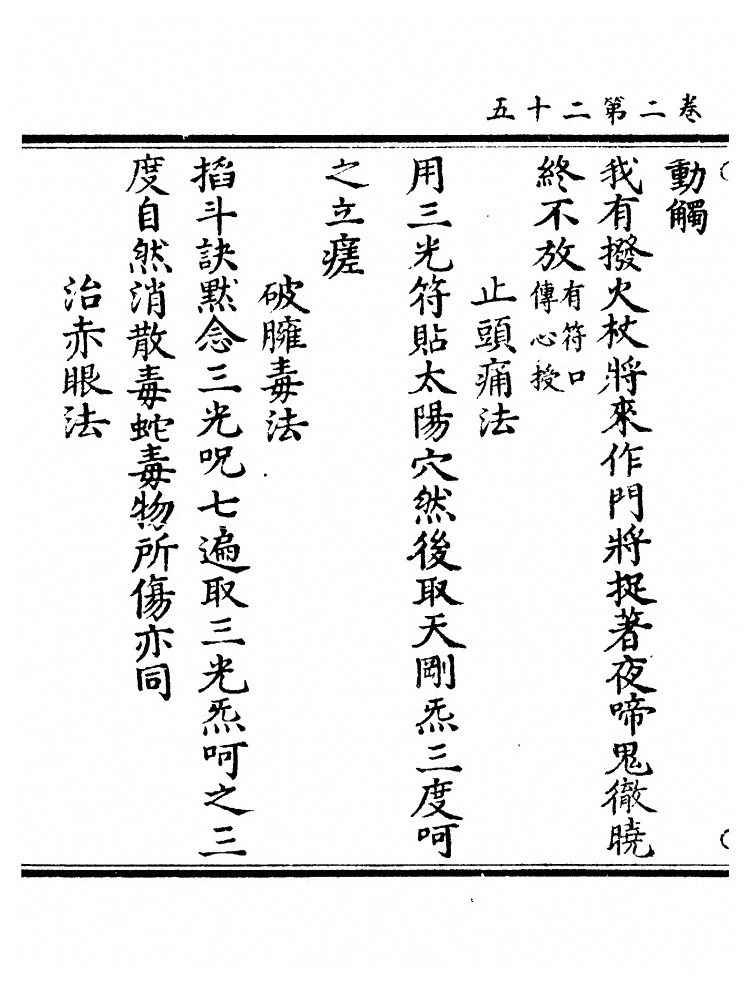 卷二第二十五
動觸
我有撥火杖將來作門將捉著夜啼鬼徹曉
終不放有符口傳心授
止頭痛法
用三光符貼太陽穴然後取天剛炁三度呵
之立瘥
破臃毒法
搯斗訣默念三光呪七遍取三光炁呵之三
度自然消散毒蛇毒物所傷亦同
治赤眼法